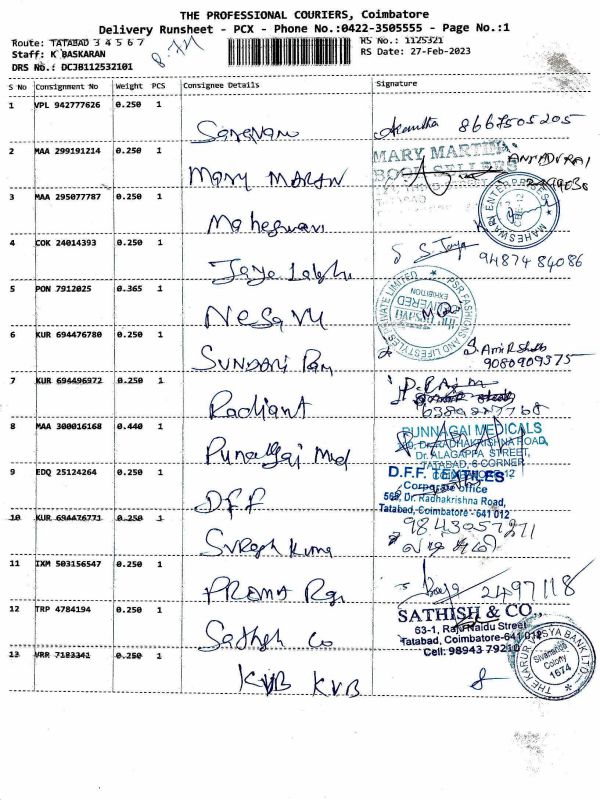 THE PROFESSIONAL COURIERS, Coimbatore
Delivery Runsheet - PCX - Phone No.:0422-3505555 - Page No.:1
Route: TATABAD 3 4 5 6 7
RS No.: 1125321
Staff: K BASKARAN
RS Date: 27-Feb-2023
DRS No.: DCJB112532101
S No Consignment No Weight PCS Consignee Details Signature
1 VPL 942777626 0.250 1 Saravan 8667505205
2 MAA 299191214 0.250 1 Mary MARTIN MARY MARTIN BOOK SELLERS
3 MAA 295077787 0.250 1 Maheswari MAHESWARI ENTERPRISES
4 COK 24014393 0.250 1 Jaya Lakshmi S. Jaya 94874 84086
5 PON 7912025 0.365 1 Nesavu PSR FASHIONS AND LIFESTYLES PRIVATE LIMITED DELIVERED EXHIBITION
6 KUR 694476780 0.250 1 SUNDARI 9080909375
7 KUR 694496972 0.250 1 Radiant
8 MAA 300016168 0.440 1 Punnagai Med PUNNAGAI MEDICALS
Dr. RADHAKRISHNAN ROAD,
Dr. ALAGAPPA STREET,
TATABAD, 6 CORNER
9 EDQ 25124264 0.250 1 D.F.F D.F.F. TEXTILES
Corporate office
569, Dr. Radhakrishna Road,
Tatabad, Coimbatore - 641 012
10 KUR 694476771 0.250 1 Suresh Kumar
11 IXM 503156547 0.250 1 2497118
12 TRP 4784194 0.250 1 Sathish Co SATHISH & CO.,
63-1, Raju Naidu Street
Tatabad, Coimbatore-641 012
Cell: 98943 79210
13 VRR 7183341 0.250 1 KVB KVB
THE KARUR VYSYA BANK LTD.
Sivananda Colony
1674